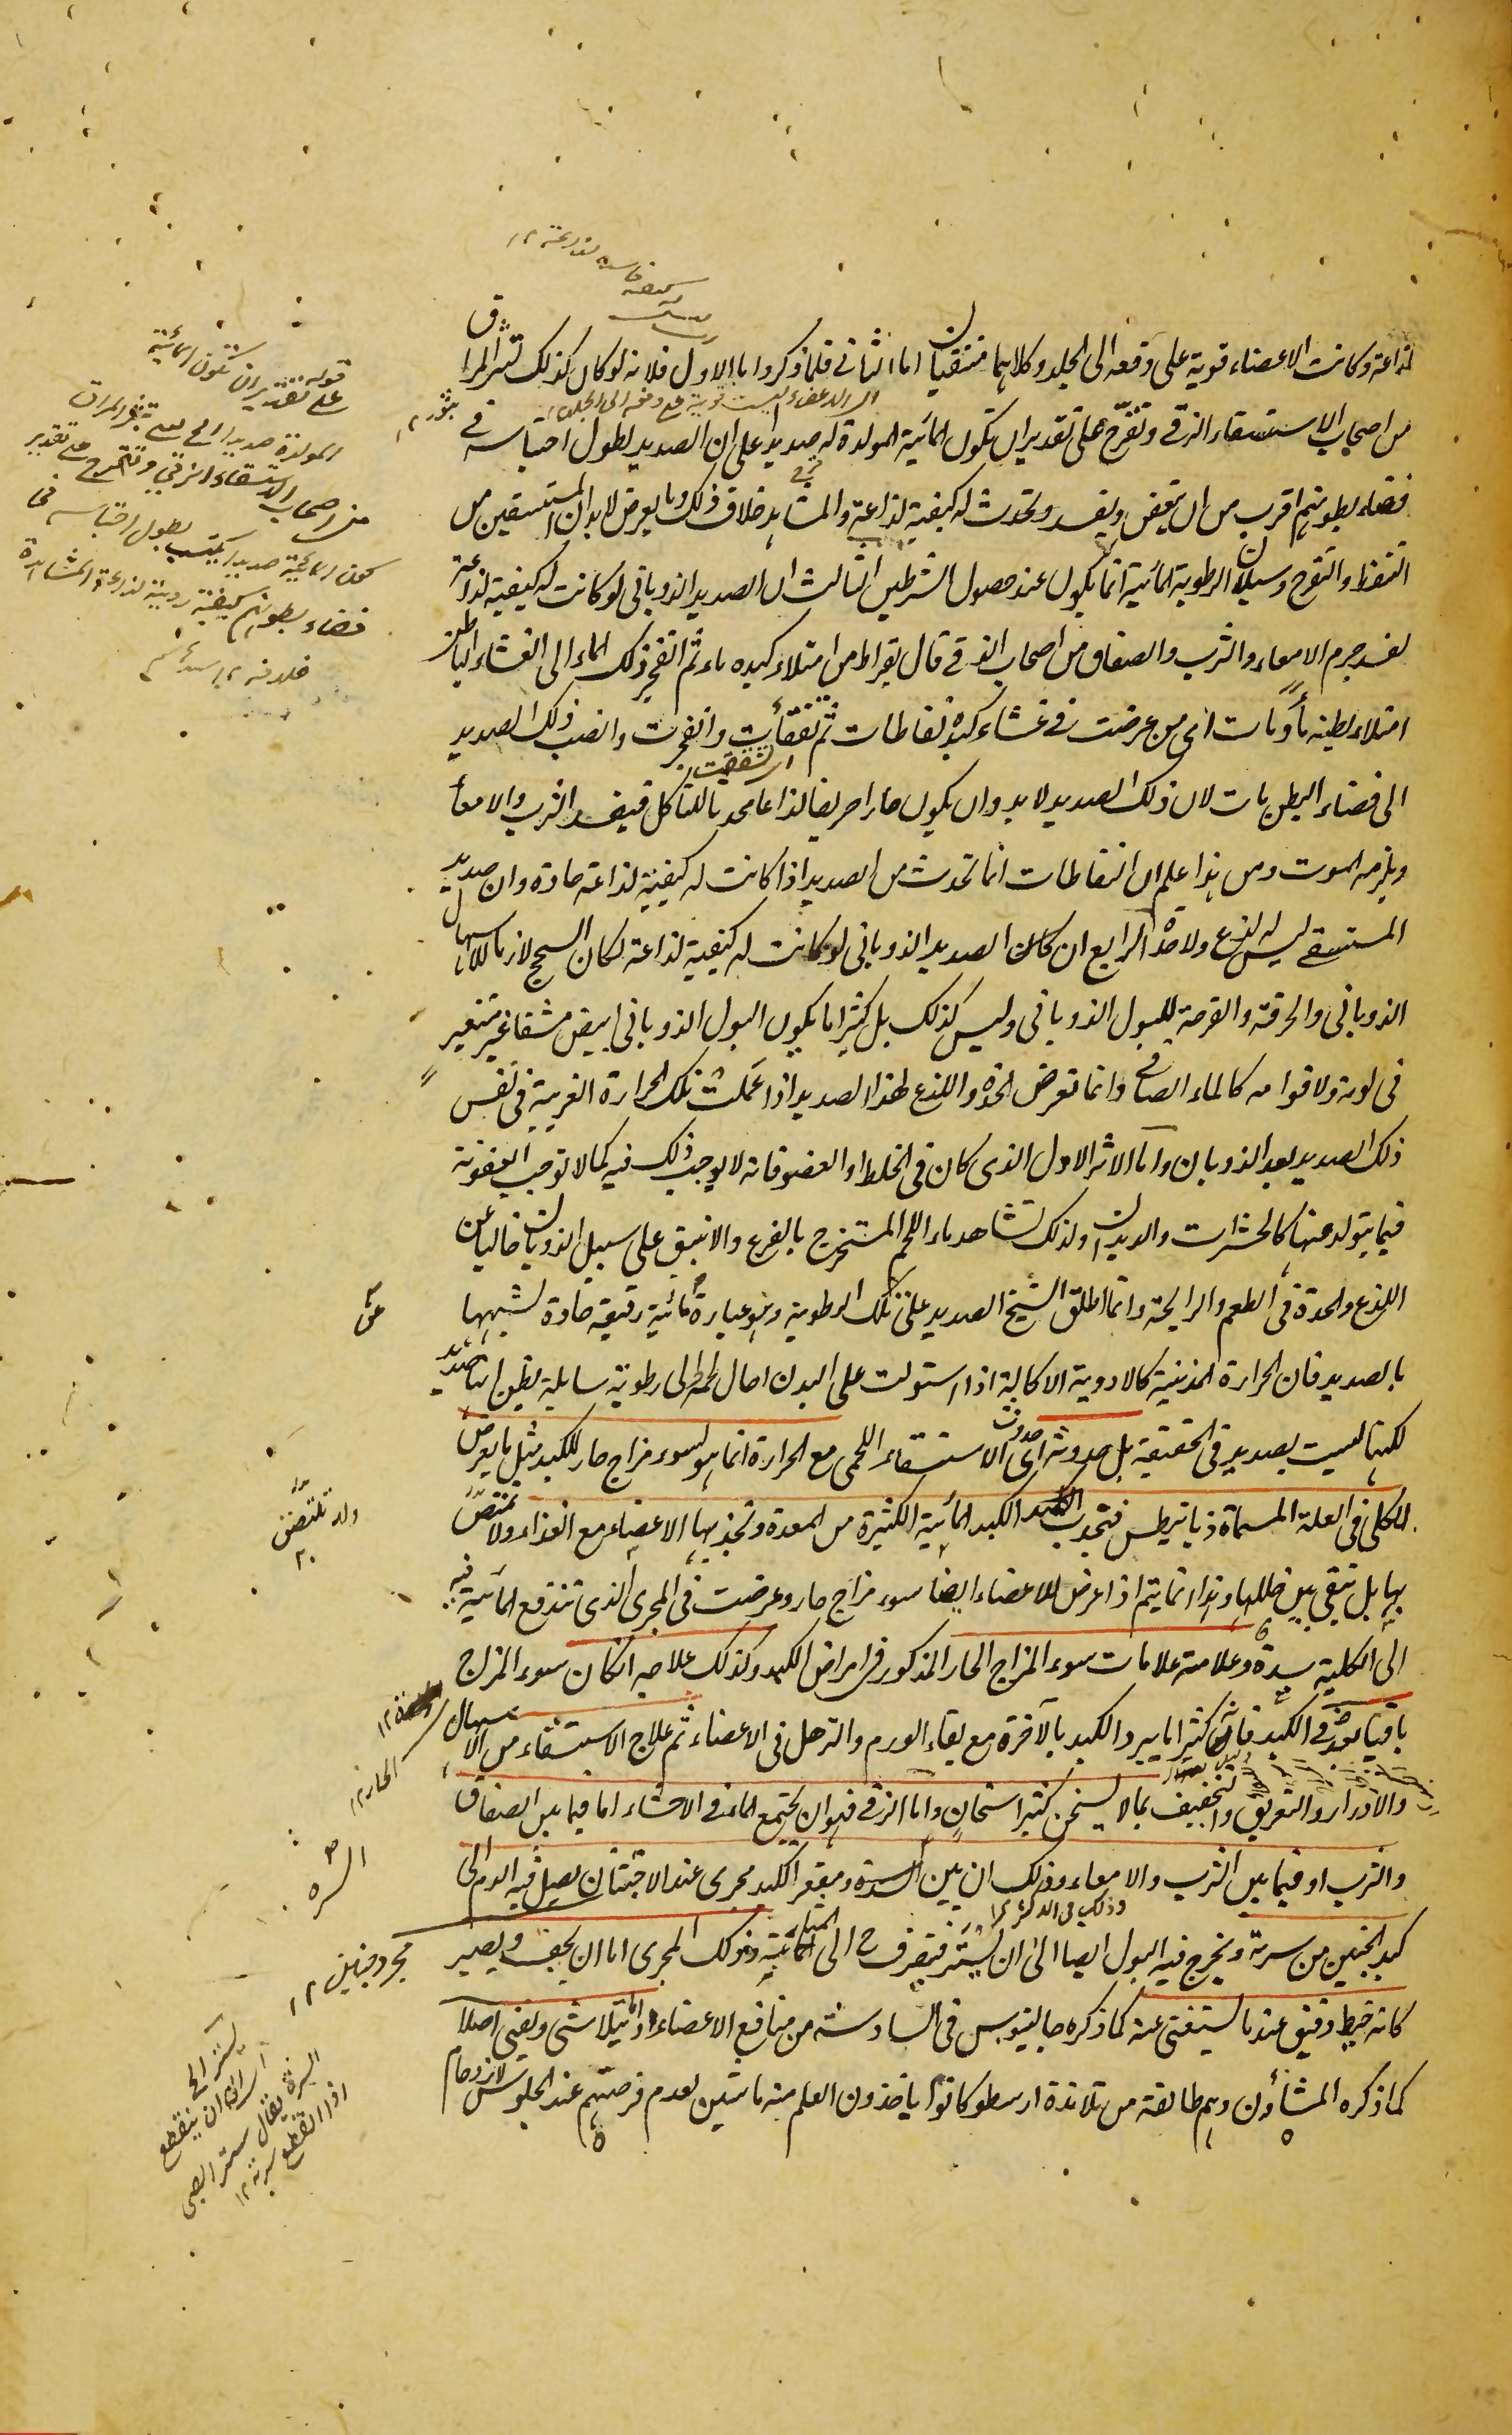 لذاعة وكانت الاعضاء قوية على دفعه الى الجلد وكلاهما منتفيان اما الثانى فلما ذكر واما الاول فلانه لو كان كذلك لبثر المراق
من اصحاب الاستسقاء الزقى وتقرح على تقدير ان يكون المائية المولدة له صديدا على ان الصديد لطول احتباسه فى
فضاء بطونهم اقرب من ان يتعفن ويفسد وتحدث له كيفية لذاعة والمشاهد خلاف ذلك وما يعرض لابدان المستسقين من
التنفط والتقرح وسيلان الرطوبة المائية انما يكون عند حصول الشرطين الثالث ان الصديد الذوبانى لو كانت له كيفية لذاعة
لفسد جرم الامعاء والثرب والصفاق من اصحاب الزقى قال بقراط من امتلاء كبده ماء ثم انفجر ذلك الماء الى الغشاء الباطن
امتلاء بطنه ماء ومات اى من عرضت فى غشاء كبده نفاطات ثم تفقأت وانفجرت وانصب ذلك الصديد
اى تشققت
الى فضاء البطن مات لان ذلك الصديد لا بد وان يكون حارا حريفا لذاعا محدثا للتأكل فيفسد الثرب والامعاء
ويلزمه الموت ومن هذا علم ان النفاطات انما تحدث من الصديد اذا كانت له كيفية لذاعة حادة وان صديد
المستسقى ليس له لذع ولا حدة الرابع ان كان الصديد الذوبانى لو كانت له كيفية لذاعة لكان السحج لازما للاسهال
الذوبانى والحرقة والقرحة للبول الذوبانى وليس كذلك بل كثيرا ما يكون البول الذوبانى ابيض مشفا غير متغير
فى لونه ولا قوامه كالماء الصافى وانما تعرض الحدة واللذع لهذا الصديد اذا عملت تلك الحرارة الغريبة فى نفس
ذلك الصديد بعد الذوبان واما الاثر الاول الذى كان فى الخلط او العضو فانه لا يوجب ذلك فيه كما لا توجب العفونة
فيما يتولد عنها كالحشرات والديدان ولذلك تشاهد ماء اللحم المستخرج بالقرع والانبيق على سبيل الذوبان خاليا عن
اللذع والحدة فى الطعم والرايحة وانما اطلق الشيخ الصديد على تلك الرطوبة وهو عبارة مائية رقيقة حادة لشبهها
بالصديد فان الحرارة المذيبة كالادوية الاكالة اذا استولت على البدن احال لحمه الى رطوبة سايلة يظن انها صديد
لكنها ليست بصديد فى الحقيقة بل حدوثه اى حدوث الاستسقاء اللحمى مع الحرارة انما هو لسوء مزاج حار للكبد مثل ما يعرض
للكلى فى العلة المسماة ذيابيطس فتجذب الكبد المائية الكثيرة من المعدة وتجذبها الاعضاء مع الغذاء ولا تمتص
بها بل تبقى بين خللها وهذا انما يتم اذا عرض للاعضاء ايضا سوء مزاج حار وعرضت فى المجرى الذى تندفع المائية فيه
الى الكلية سدة وعلامته علامات سوء المزاج الحار المذكور فى امراض الكبد وكذلك علاجه ان كان سوء المزاج
باقيا بعد فى الكبد فانه كثيرا ما يبرد الكبد بالآخرة مع بقاء الورم والترهل فى الاعضاء ثم علاج الاستسقاء من الاسهال
والادرار والتعريق والتجفيف بما لا يسخن كثير اسخان واما الزقى فهو ان يجتمع الماء فى الاحشاء اما فيما بين الصفاق
والثرب او فيما بين الثرب والامعاء وذلك ان بين السرة ومقعر الكبد مجرى عند الاجتنان يصل فيه الدم الى
كبد الجنين من سرته ويخرج فيه البول ايضا الى ان يستر فيتصرف ح الى المثانة وذلك المجرى اما ان يجف ويصير
كانه خيط دقيق عند ما يستغنى عنه كما ذكره جالينوس فى السادسة من منافع الاعضاء واما يتلاشى ويفنى اصلا
كما ذكره المشاؤن وهم طائفة من تلامذة ارسطو كانوا ياخذون العلم منه ماشين لعدم فرصتهم عند الجلوس لازدحام
قوله على تقدير ان تكون المائية
المولدة صديدا الخ يعنى تبثر المراق
من اصحاب الاستسقاء الزقى وتتقرح على تقدير
كون المائية صديدا يكتسب بطول احتباسه فى
فضاء بطونهم كيفية ردية لذاعة والمشاهدة
خلافه ١٢
السرة
مجرد جنين ١٢
يستر الخ
اى الى ان ينقطع
السرة يقال ستر الصبى
اذا انقطع سرته ١٢